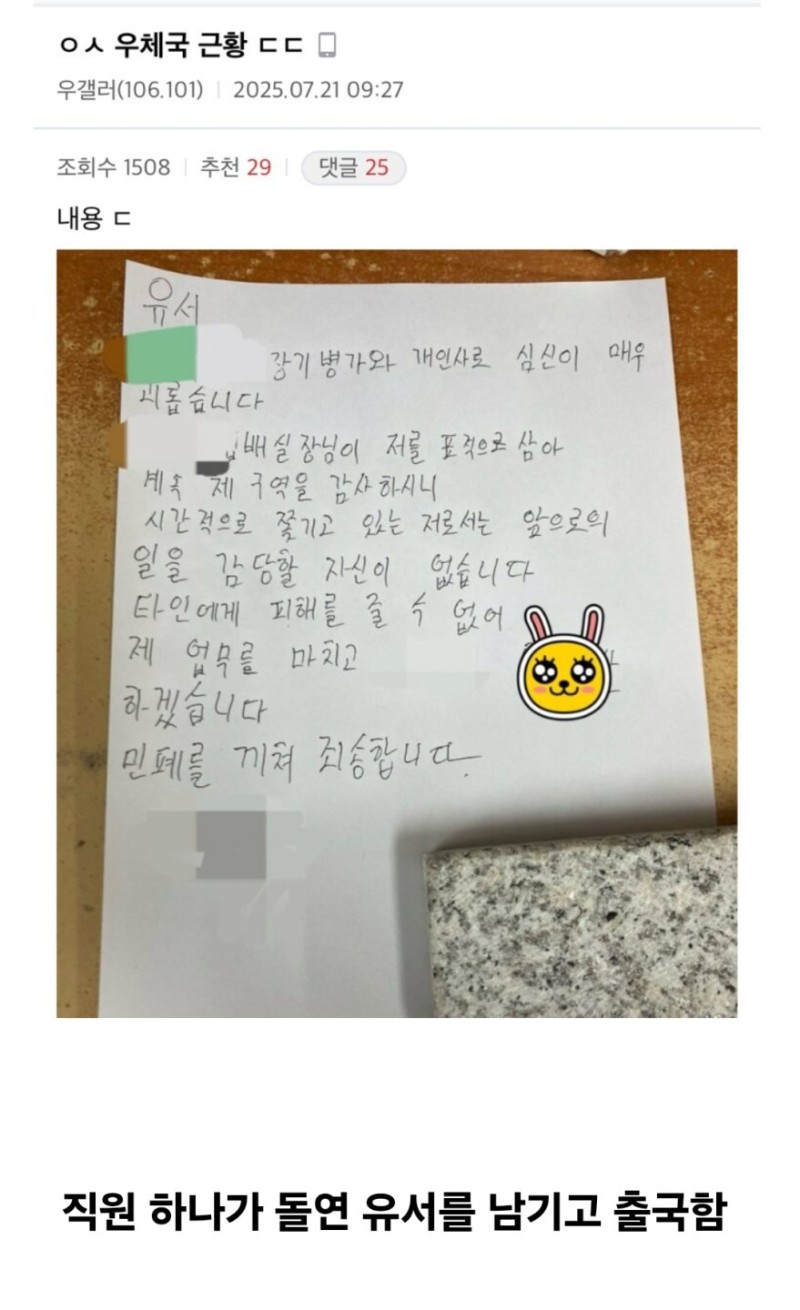 ㅇㅅ 우체국 근황 ㄷㄷ
우갤러(106.101) 2025.07.21 09:27
조회수 1508 추천 29 댓글 25
내용 ㄷ
유서
장기병가와 개인사로 심신이 매우
괴롭습니다
집배실장님이 저를 표적으로 삼아
계속 제 구역을 감사하시니
시간적으로 쫓기고 있는 저로서는 앞으로의
일을 감당할 자신이 없습니다
타인에게 피해를 줄 수 없어
제 업무를 마치고
하겠습니다
민폐를 끼쳐 죄송합니다.
직원 하나가 돌연 유서를 남기고 출국함